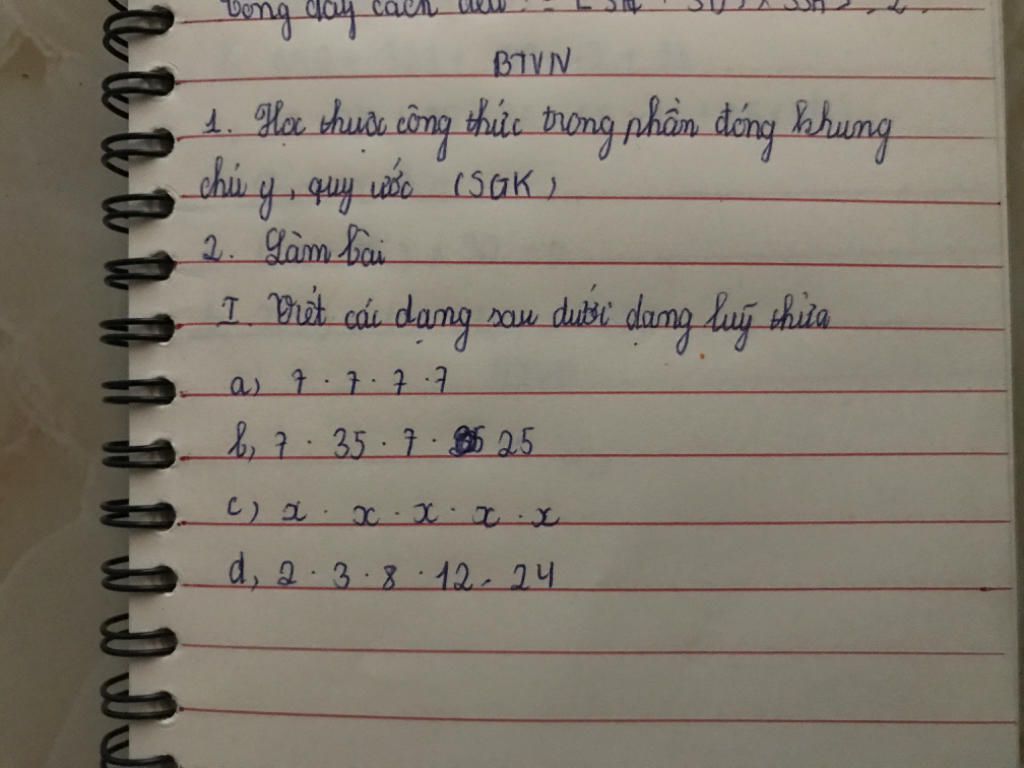 BTVN
1. Học thuộc công thức trong phần đóng khung
chú y, quy ước (SGK)
2. Làm bài
I. Viết các dạng sau dưới dạng luỹ thừa
a) 7 . 7 . 7 . 7
b, 7 . 35 . 7 . 25
c) x . x . x . x . x
d, 2 . 3 . 8 . 12 . 24